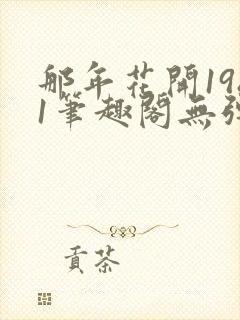 那年花開19
1筆趣閣無
貢茶